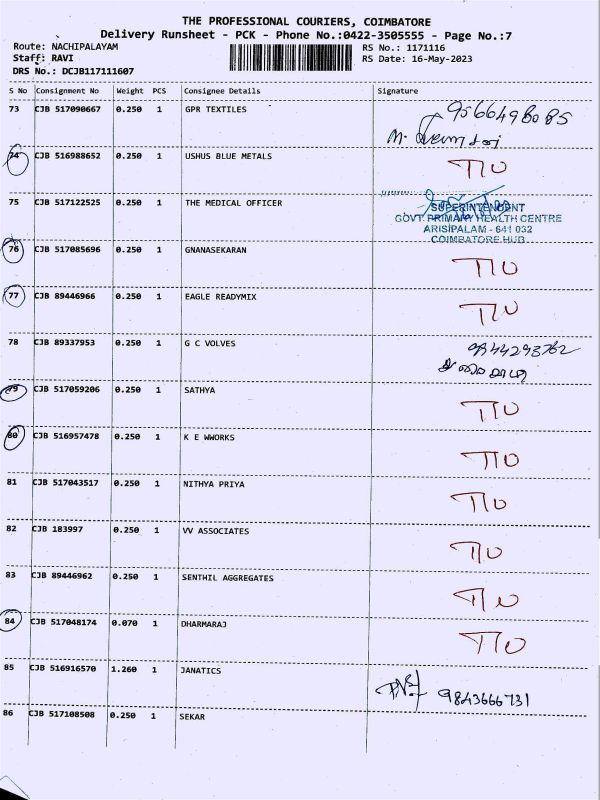 THE PROFESSIONAL COURIERS, COIMBATORE
Delivery Runsheet - PCK - Phone No.:0422-3505555 - Page No.:7
Route: NACHIPALAYAM RS No.: 1171116
Staff: RAVI RS Date: 16-May-2023
DRS No.: DCJB117111607
S No Consignment No Weight PCS Consignee Details Signature
73 CJB 517090667 0.250 1 GPR TEXTILES 9566498085
M.
74 CJB 516988652 0.250 1 USHUS BLUE METALS T10
75 CJB 517122525 0.250 1 THE MEDICAL OFFICER
SUPERINTENDENT
GOVT. PRIMARY HEALTH CENTRE
ARISIPALAM - 641 032
COIMBATORE.HUB
76 CJB 517085696 0.250 1 GNANASEKARAN T10
77 CJB 89446966 0.250 1 EAGLE READYMIX T10
78 CJB 89337953 0.250 1 G C VOLVES
79 CJB 517059206 0.250 1 SATHYA T10
80 CJB 516957478 0.250 1 K E WWORKS T10
81 CJB 517043517 0.250 1 NITHYA PRIYA T10
82 CJB 183997 0.250 1 VV ASSOCIATES T10
83 CJB 89446962 0.250 1 SENTHIL AGGREGATES T10
84 CJB 517048174 0.070 1 DHARMARAJ T10
85 CJB 516916570 1.260 1 JANATICS 9843666731
86 CJB 517108508 0.250 1 SEKAR